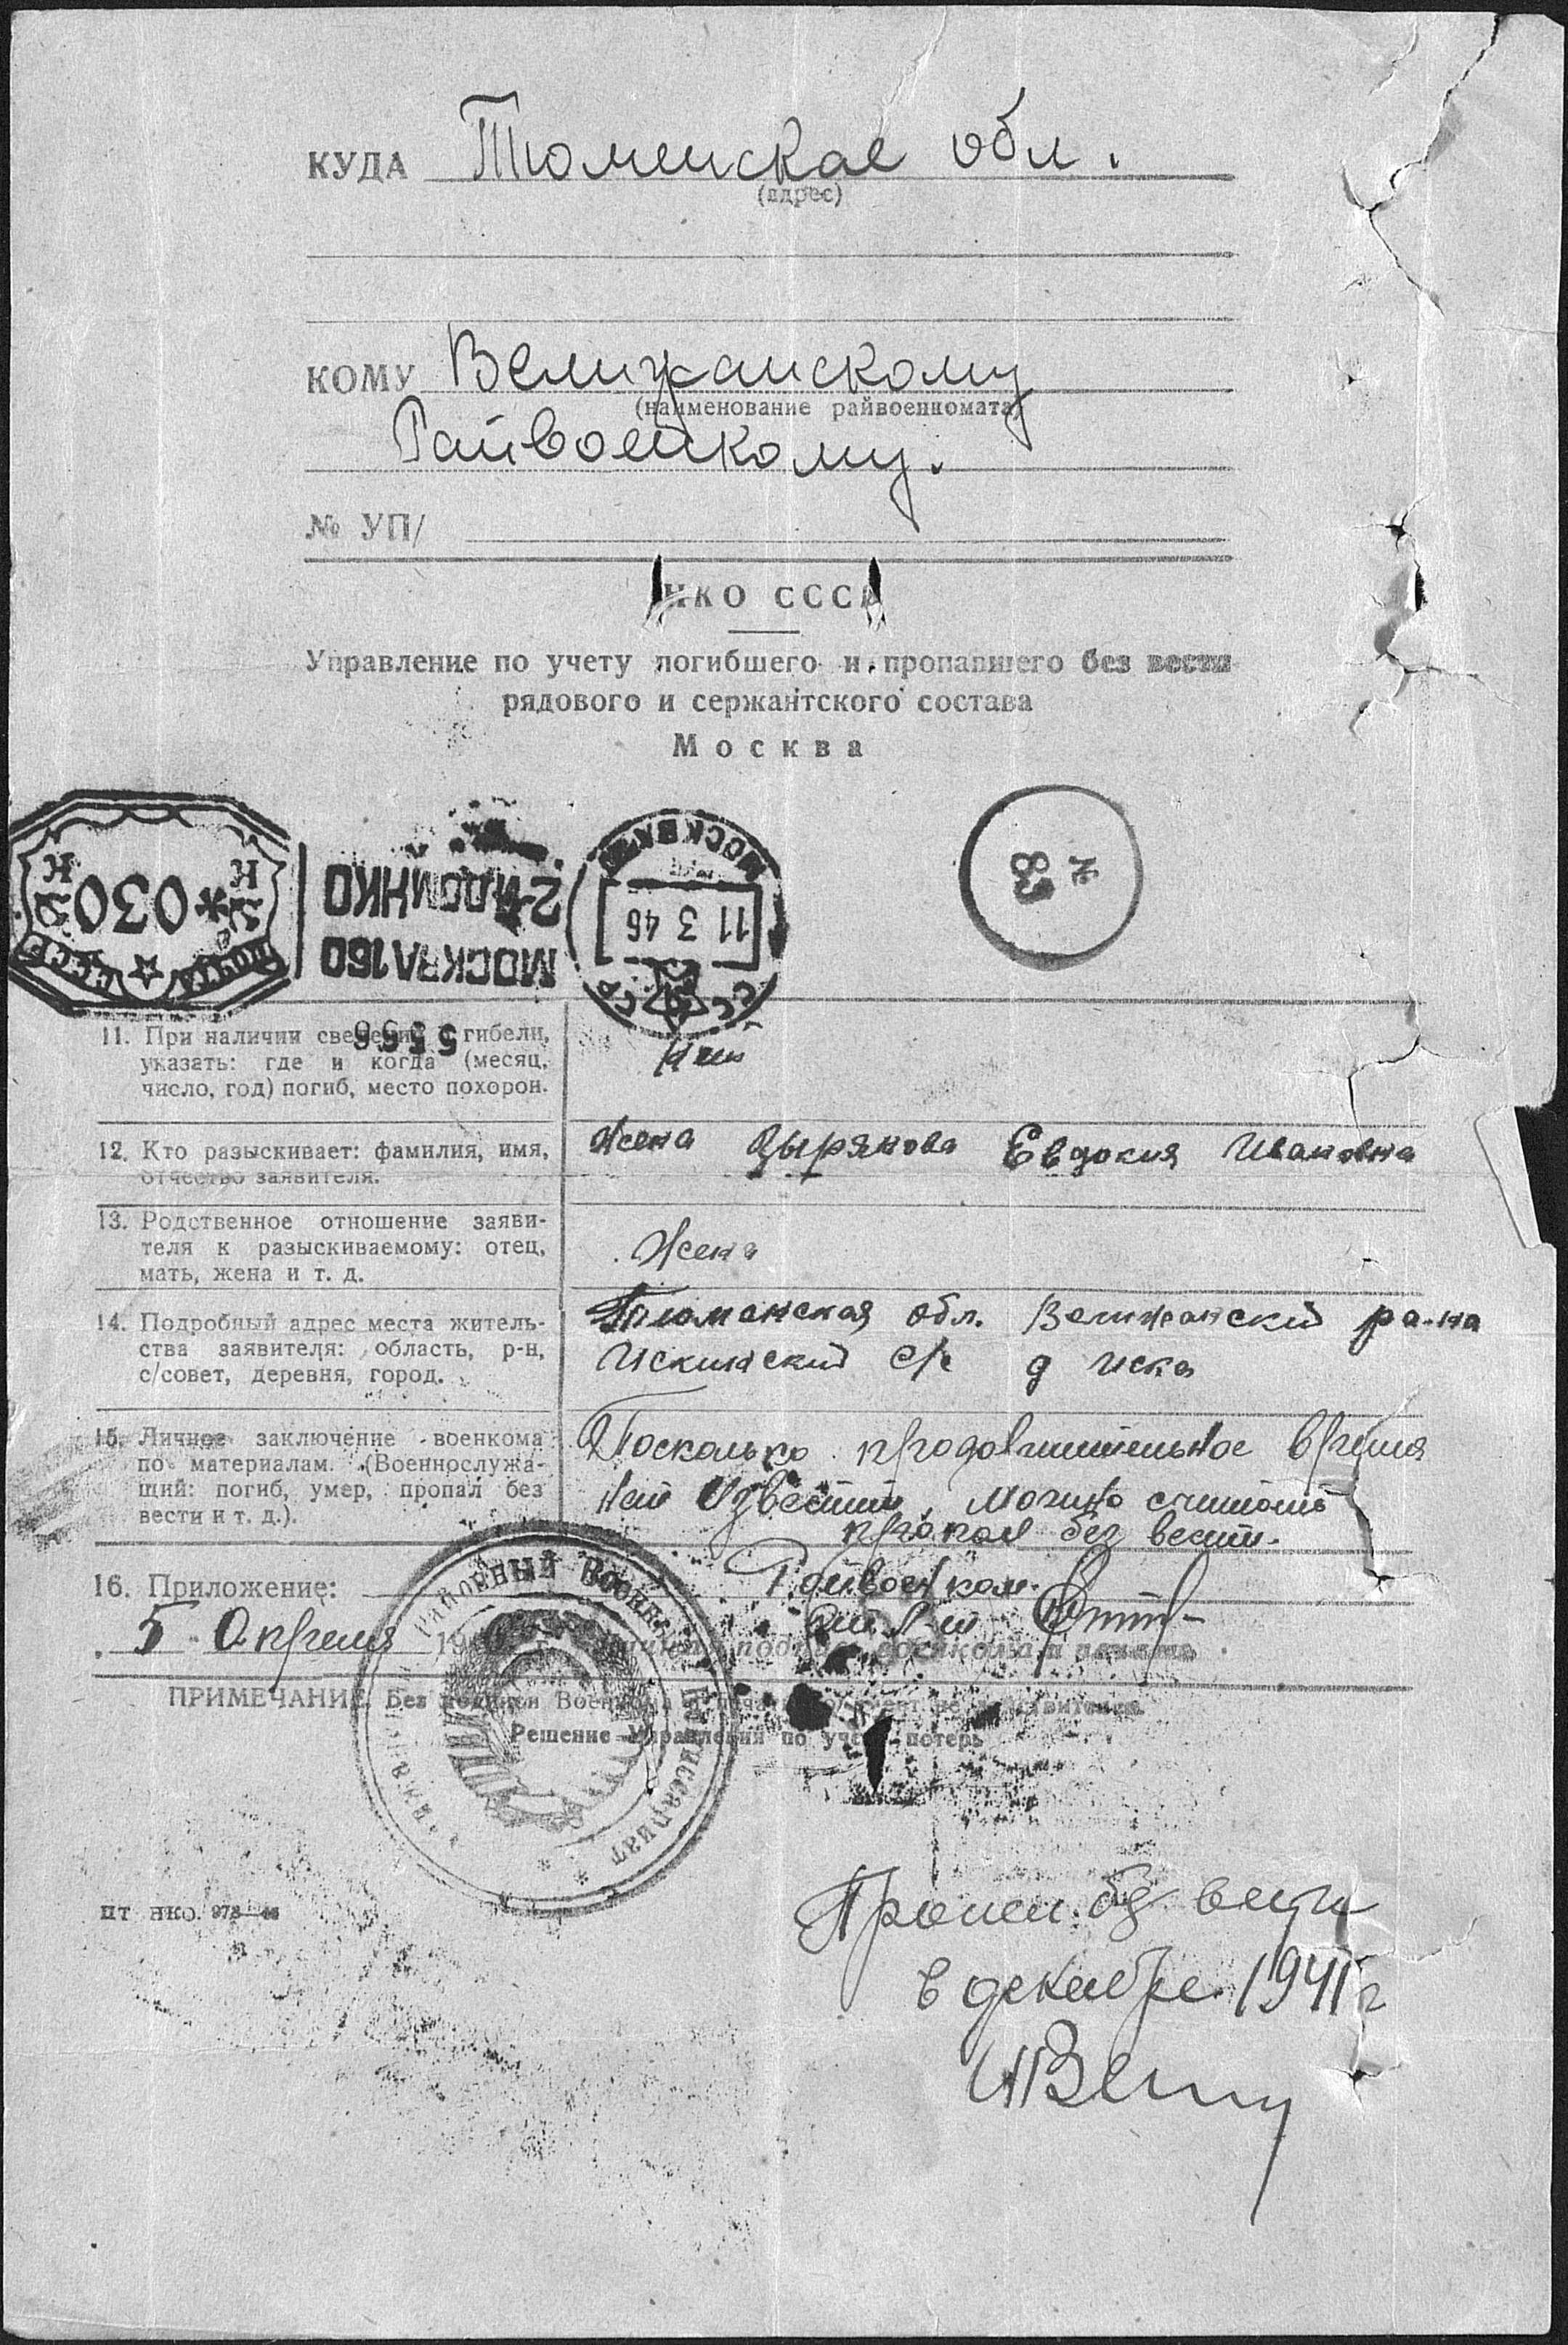 КУДА Тюменская обл.
(адрес)
КОМУ Велижанскому
(наименование райвоенкомата)
Райвоенкому.
№ УП/
НКО СССР
Управление по учету погибшего и пропавшего без вести
рядового и сержантского состава
Москва
ПОЧТА СССР
*030
К К
МОСКВА 160
2-Й ДОМ НКО
МОСКВА
11 3 46
СССР
5556
11. При наличии сведений о гибели,
указать: где и когда (месяц,
число, год) погиб, место похорон.
12. Кто разыскивает: фамилия, имя,
отчество заявителя.
Жена Зырянова Евдокия Ивановна
13. Родственное отношение заяви-
теля к разыскиваемому: отец,
мать, жена и т. д.
Жена
14. Подробный адрес места житель-
ства заявителя: область, р-н,
с/совет, деревня, город.
Тюменская обл. Велижанский ра-на
Искинский с/с д Иска
15. Личное заключение военкома
по материалам. (Военнослужа-
щий: погиб, умер, пропал без
вести и т. д.).
Поскольку продолжительное время
нет известий, можно считать
пропал без вести.
16. Приложение:
Райвоенком
5 Апреля 19 г.
ПРИМЕЧАНИЕ. Без подписи Военкома
Решение Управления по учету потерь
Районный Военный Комиссариат
ПТ НКО. 973—46
Пропал без вести
в декабре 1941 г